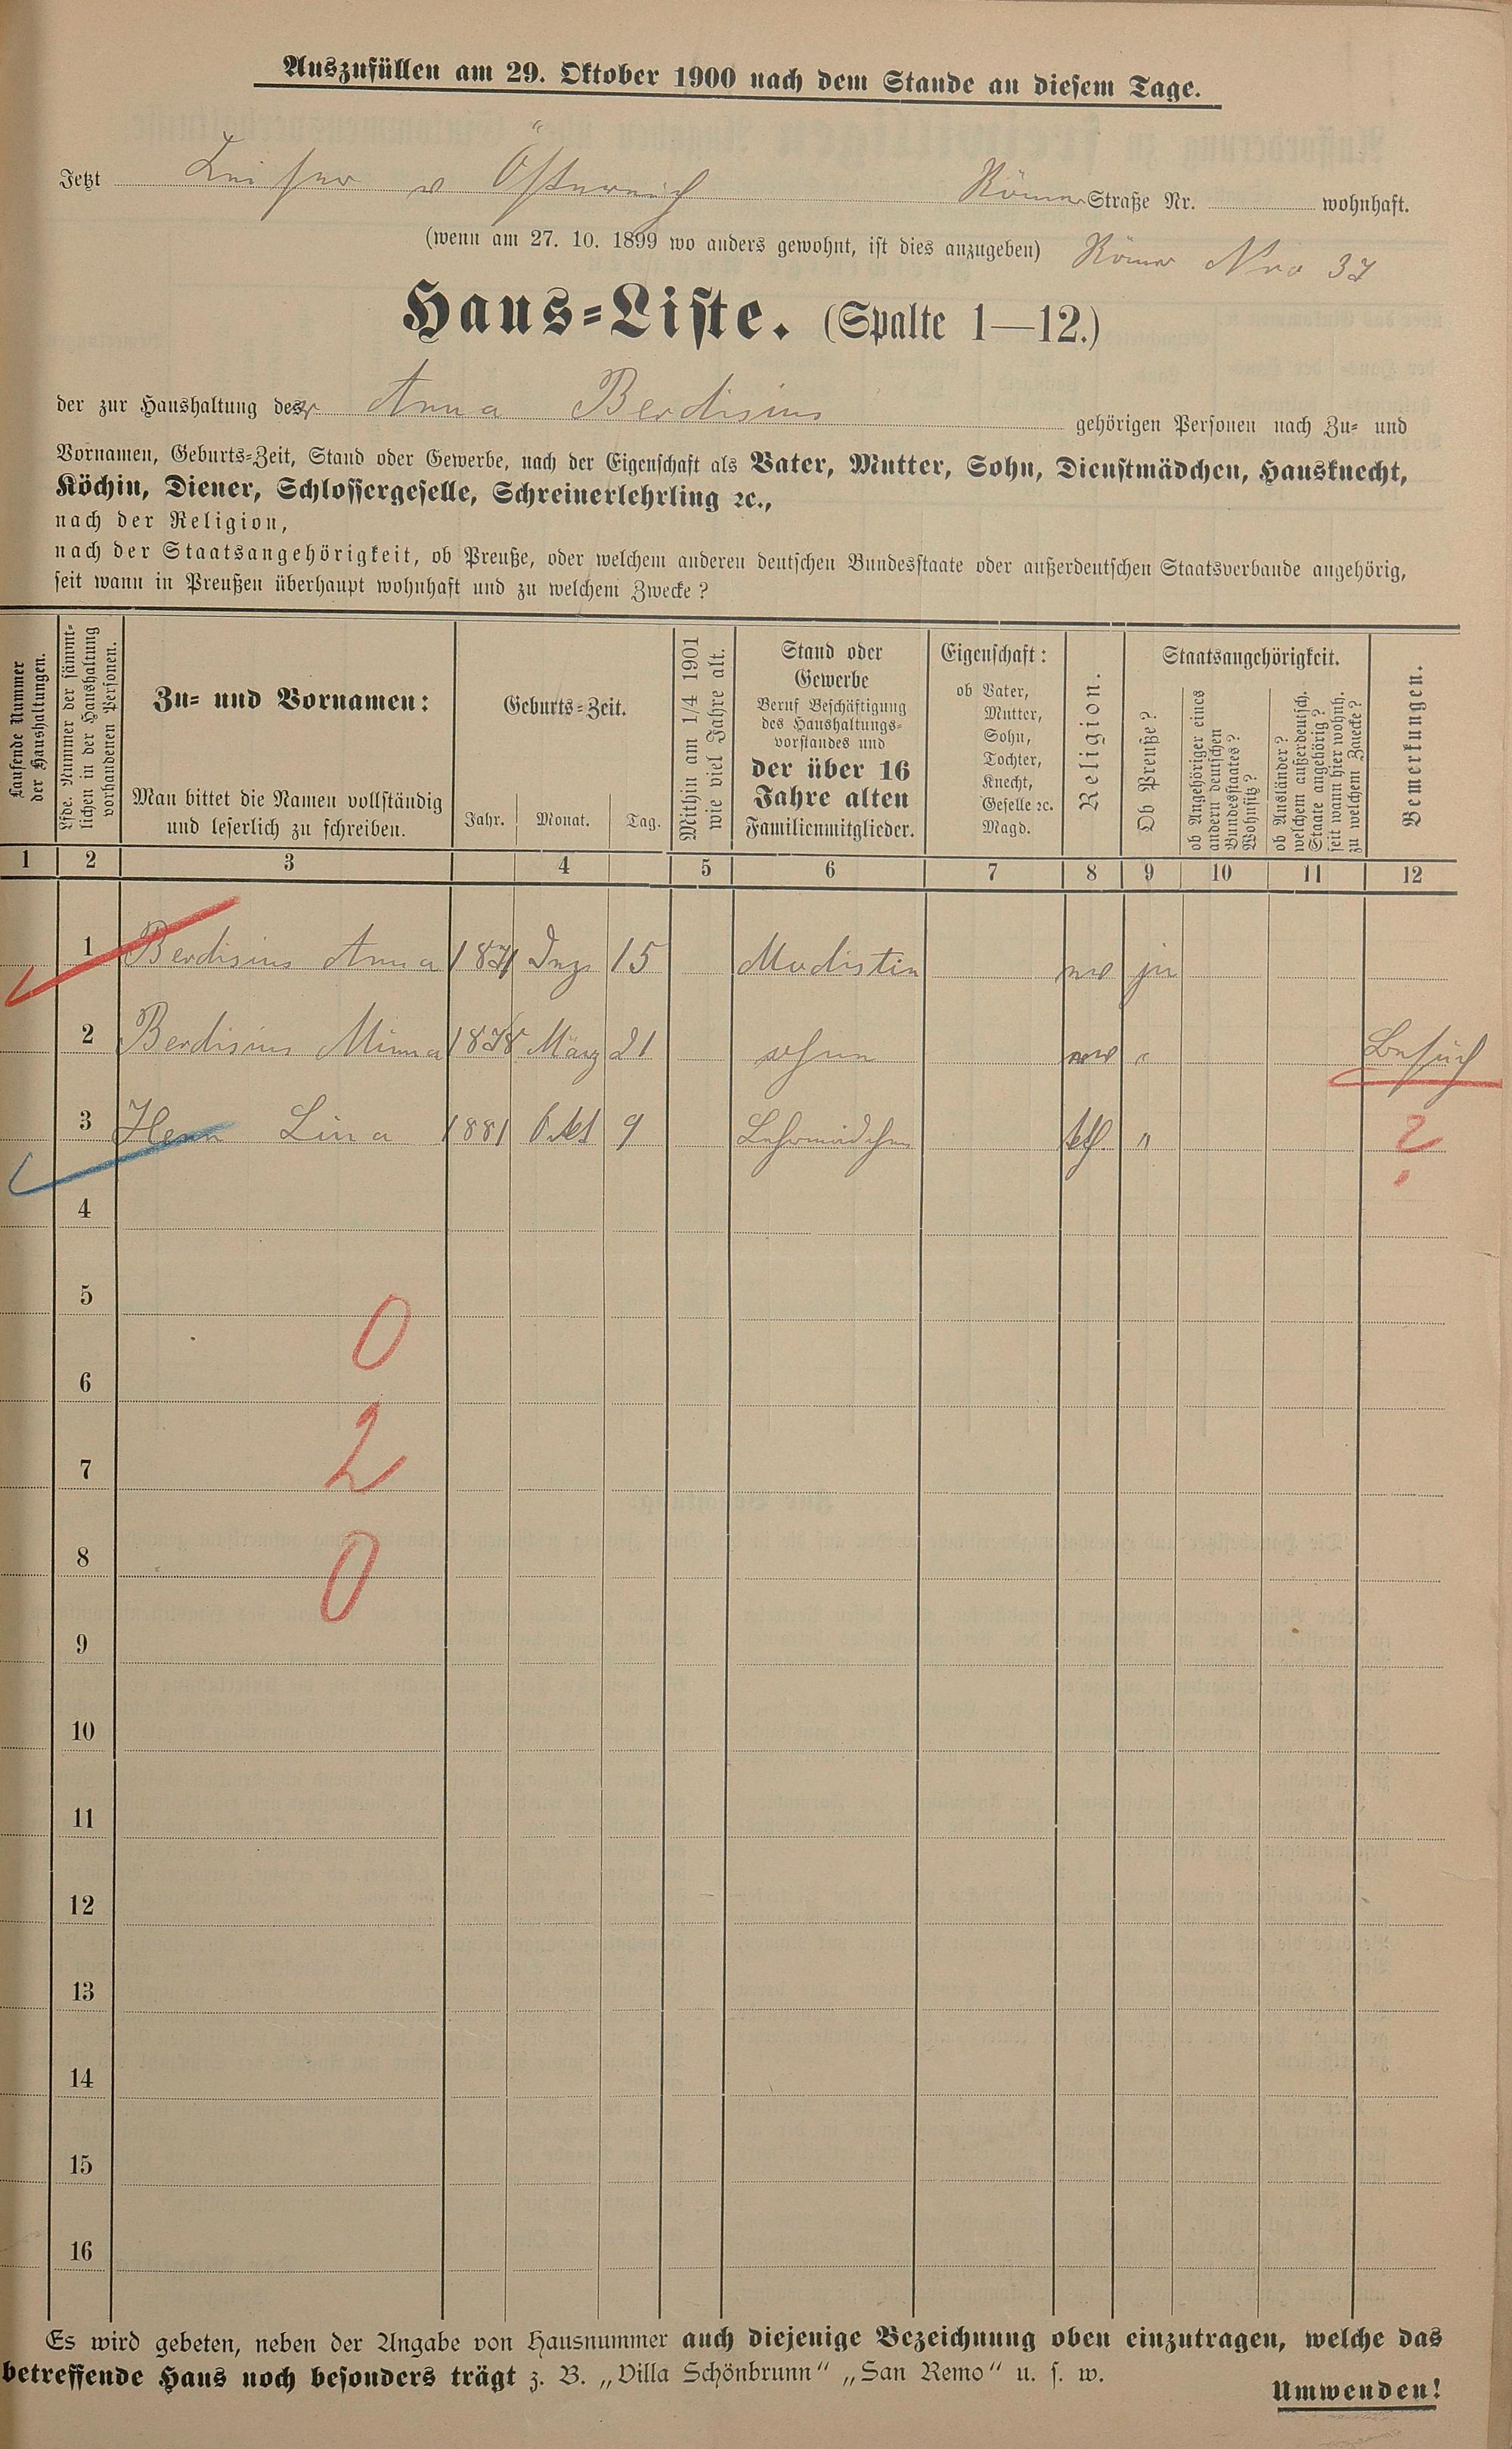 Auszufüllen am 29. Oktober 1900 nach dem Stande an diesem Tage.
Jetzt Keiser v Östereich Römer Straße Nr. wohnhaft.
(wenn am 27. 10. 1899 wo anders gewohnt, ist dies anzugeben) Römer Nro 37
Haus-Liste. (Spalte 1—12.)
der zur Haushaltung der Anna Berdisius gehörigen Personen nach Zu- und
Vornamen, Geburts-Zeit, Stand oder Gewerbe, nach der Eigenschaft als Vater, Mutter, Sohn, Dienstmädchen, Hausknecht,
Köchin, Diener, Schlossergeselle, Schreinerlehrling ꝛc.,
nach der Religion,
nach der Staatsangehörigkeit, ob Preuße, oder welchem anderen deutschen Bundesstaate oder außerdeutschen Staatsverbande angehörig,
seit wann in Preußen überhaupt wohnhaft und zu welchem Zwecke?
Laufende Nummer
der Haushaltungen.
Lfde. Nummer der sämmt-
lichen in der Haushaltung
vorhandenen Personen.
Zu- und Vornamen:
Man bittet die Namen vollständig
und leserlich zu schreiben.
Geburts-Zeit.
Jahr. Monat. Tag.
Mithin am 1/4 1901
wie viel Jahre alt.
Stand oder
Gewerbe
Beruf Beschäftigung
des Haushaltungs-
vorstandes und
der über 16
Jahre alten
Familienmitglieder.
Eigenschaft:
ob Vater,
Mutter,
Sohn,
Tochter,
Knecht,
Geselle ꝛc.
Magd.
Religion.
Staatsangehörigkeit.
Ob Preuße?
ob Angehöriger eines
andern deutschen
Bundesstaates?
Wohnsitz?
ob Ausländer?
welchem außerdeutsch.
Staate angehörig?
seit wann hier wohnh.
zu welchem Zwecke?
Bemerkungen.
1 2 3 4 5 6 7 8 9 10 11 12
1 Berdisius Anna 1871 15 Modistin ja
2 Berdisius Minna 1878 März 21 ohne " Besuch
3 Lina 1881 Okt 9 Lehrmädchen kth. " ?
4
5
0
6
2
7
8
0
9
10
11
12
13
14
15
16
Es wird gebeten, neben der Angabe von Hausnummer auch diejenige Bezeichnung oben einzutragen, welche das
betreffende Haus noch besonders trägt z. B. „Villa Schönbrunn“ „San Remo“ u. s. w.
Umwenden!